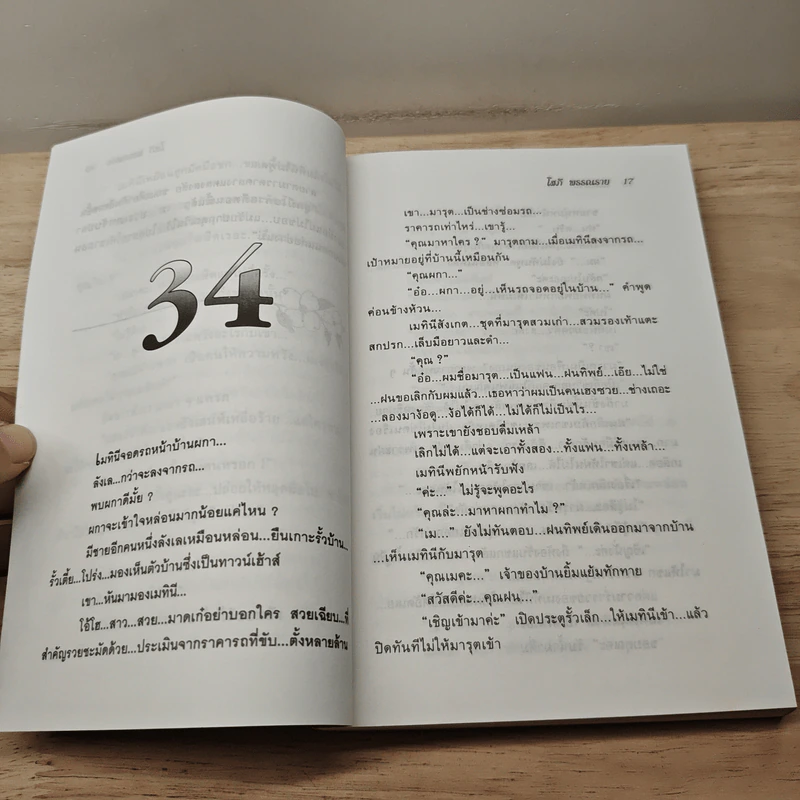 34
เมทินีจอดรถหน้าบ้านผกา...
ลังเล...กว่าจะลงจากรถ...
พบผกาดีมั้ย ?
ผกาจะเข้าใจหล่อนมากน้อยแค่ไหน ?
มีชายอีกคนหนึ่งลังเลเหมือนหล่อน...ยืนเกาะรั้วบ้าน...
รั้วเตี้ย...โปร่ง...มองเห็นตัวบ้านซึ่งเป็นทาวน์เฮ้าส์
เขา...หันมามองเมทินี...
โอ้โฮ...สาว...สวย...มาดเก๋อย่าบอกใคร สวยเฉียบ...ที่
สำคัญรวยชะมัดด้วย...ประเมินจากราคารถที่ขับ...ตั้งหลายล้าน
โสภี พรรณราย 17
เขา...มารุต...เป็นช่างซ่อมรถ...
ราคารถเท่าไหร่...เขารู้...
"คุณมาหาใคร ?" มารุตถาม...เมื่อเมทินีลงจากรถ...
เป้าหมายอยู่ที่บ้านนี้เหมือนกัน
"คุณผกา..."
"อ๋อ...ผกา...อยู่...เห็นรถจอดอยู่ในบ้าน..." คำพูด
ค่อนข้างห้วน...
เมทินีสังเกต...ชุดที่มารุตสวมเก่า...สวมรองเท้าแตะ
สกปรก...เล็บมือยาวและดำ...
"คุณ ?"
"อ๋อ...ผมชื่อมารุต...เป็นแฟน...ฝนทิพย์...เอ๊ย...ไม่ใช่
...ฝนขอเลิกกับผมแล้ว...เธอหาว่าผมเป็นคนเฮงซวย...ช่างเถอะ
...ลองมาง้อดู...ง้อได้ก็ได้...ไม่ได้ก็ไม่เป็นไร...
เพราะเขายังชอบดื่มเหล้า
เลิกไม่ได้...แต่จะเอาทั้งสอง...ทั้งแฟน...ทั้งเหล้า...
เมทินีพยักหน้ารับฟัง
"ค่ะ..." ไม่รู้จะพูดอะไร
"คุณล่ะ...มาหาผกาทำไม ?"
"เม..." ยังไม่ทันตอบ...ฝนทิพย์เดินออกมาจากบ้าน
...เห็นเมทินีกับมารุต
"คุณเมคะ..." เจ้าของบ้านยิ้มแย้มทักทาย
"สวัสดีค่ะ...คุณฝน..."
"เชิญเข้ามาค่ะ" เปิดประตูรั้วเล็ก...ให้เมทินีเข้า...แล้ว
ปิดทันทีไม่ให้มารุตเข้า